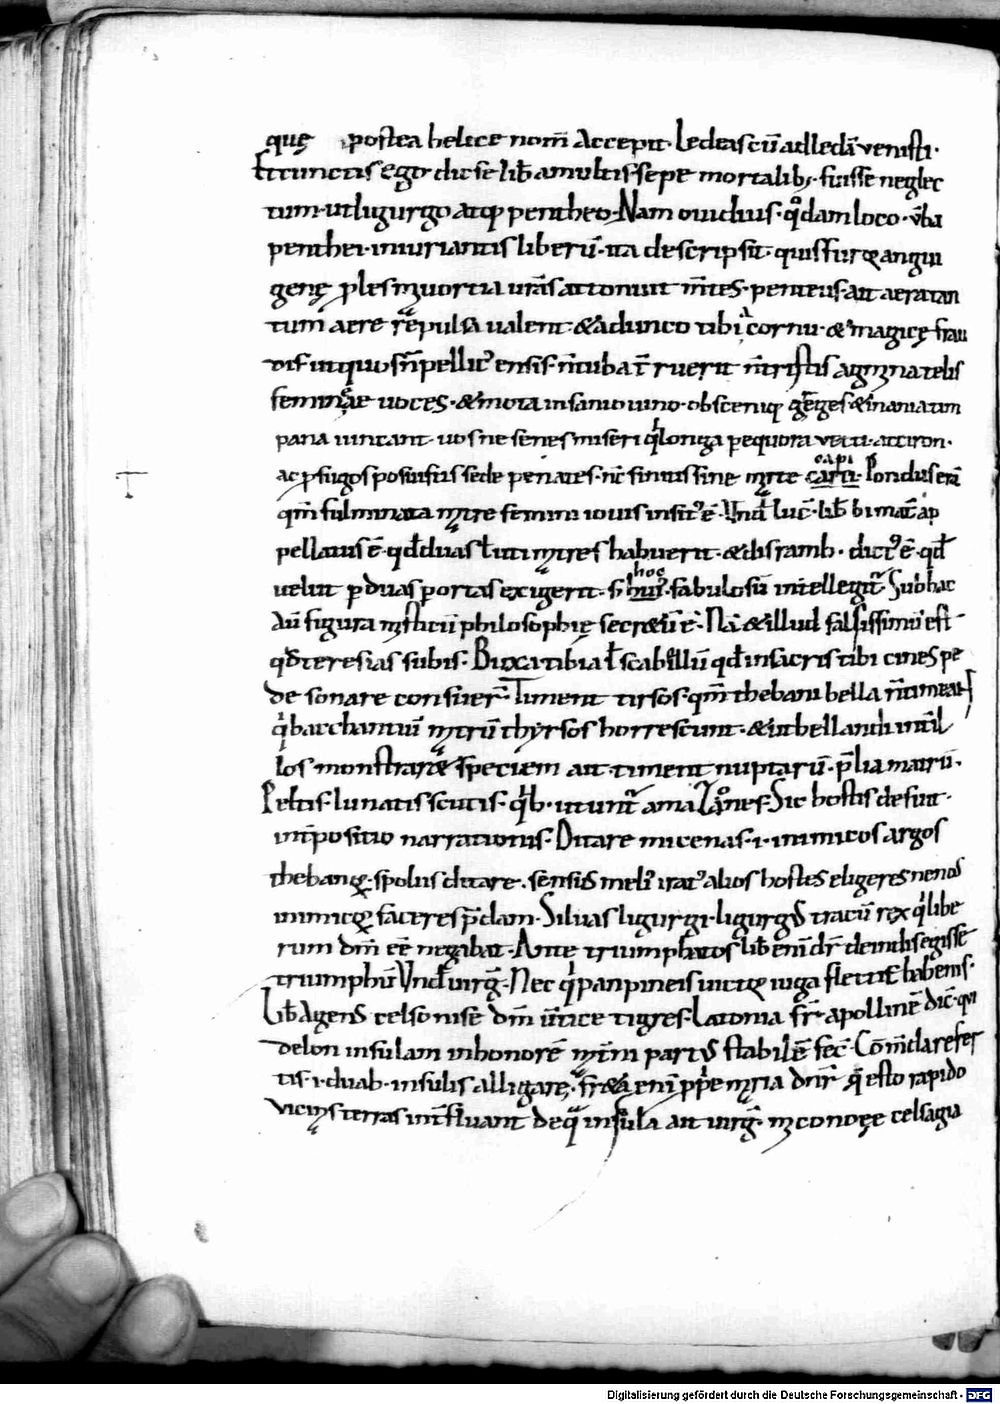 quę postea helice nom̄ accepit. Ledeiscū adledā venisti.
Etcunctis ego dicse lib̄ amultis sepe mortalib; fuisse neglec
tum. utligurgo atq; pentheo. Nam ouidius. qͦdam loco. v̄ba
penthei. iniuriantis liberū. ita descripsit. quisfuror angui
genę ples mauortia urās attonuit m̄tes. penteus. ait aeratan
tum aere repulsa ualent. & adunco tibi cornu. & magicę frau
dis utquos n̄ pellic᷒ ensis. n̄ tuba t̄ruerit n̄ tristis agmina telis
femineae uoces. & mota insania uino. obsceniq; greges & inania tim
pana uincant. uosne senes miseri q̄ longa pequora vecti. attiron.
ac pfugos posuistis sede penates. nc̄ sinitis sine m̄rte capi Pondus erā
qm̄ fulminata m̄re femini iouis insit᷒ ē. Vnd̄ luc̄. lib̄ bimat̄ ap
pellatus ē. qd̄ duas uti m̄res habuerit. & disramb. dict᷒ ē. qd̄
velut p duas portas exigerit. s; hoc fabulosū intellegit᷒. Subhac
aū figura mysticū philosophię secretū ē. Nā & illud falsissimū est
qd̄ teresias subis. Buxa tibia t̄ scabillū qd̄ insacris tibi cines pe
de sonare consuer̄. Timent tirsos. qm̄ thebani bella n̄ timeat;
q̄ bacchantiū m̄trū thyrsos horrescunt. & utbellandi intil
los monstraret speciem ait. timent nuptarū. plia matrū.
Peltis. lunatis scutis. q̄b. utunt᷒ amazones. Sic hostis defuit.
int̄positio narrationis. Ditare micenas. i. inimicos argos
thebanoꝝ. spoliis ditare. sensus meli᷒ irat᷒ alios hostes eligeres nenos
inimicoꝝ faceres p̄dam. Siluas ligurgi. ligurgus tracū rex q̄ libe
rum dm̄ eē negabat. Ante triumphatos lib̄ enī dr̄ deindis egisse
triumphū Vnd̄ uirḡ. Nec q̄ panpineis uictor iuga flectit habenis.
Lib̄ Agens celso nise dm̄ u̅tice tigres. Latonia fr̄ apollinē dic̄. qui
delon insulam inhonorē m̄rni partus stabilē fec̄. Com̄da refer
tis. i. duab. insulis alligare. freta enī ppe m̄ria dn̄r q̄ esto rapido
viciniis terras int̄fluant deq̄ insula ait uirḡ. miconoęe celsagia